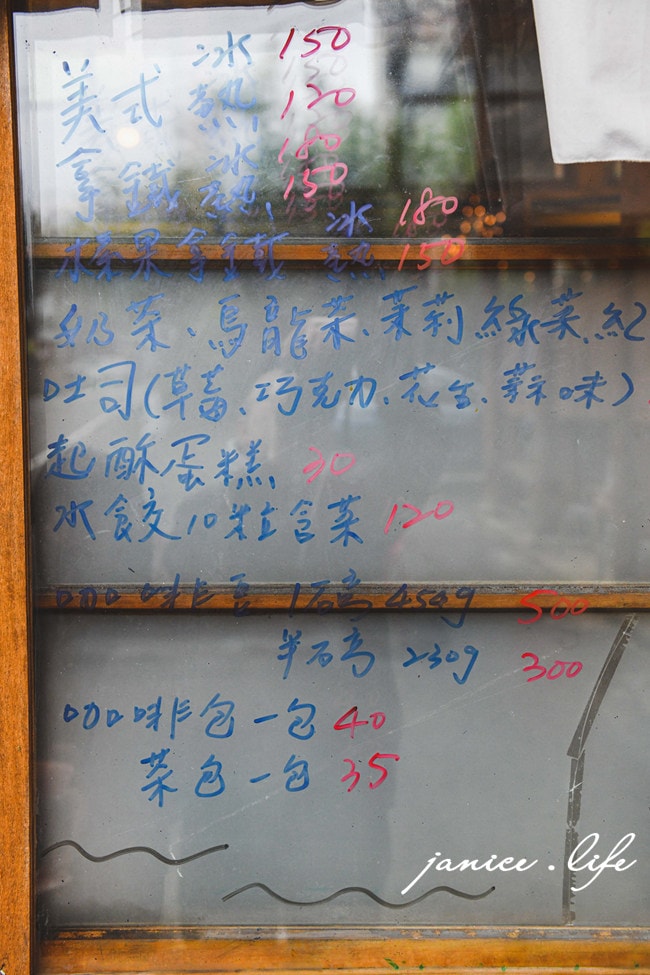 美式 冰 150
熱 120
拿鐵 冰 180
熱 150
榛果拿鐵 冰 180
熱 150
奶茶、烏龍茶、茉莉綠茶、紅
吐司(草莓、巧克力、花生、蒜味)
起酥蛋糕 30
水餃10粒含菜 120
咖啡豆 1磅 454g 500
半磅 230g 300
咖啡包一包 40
茶包一包 35
janice.life